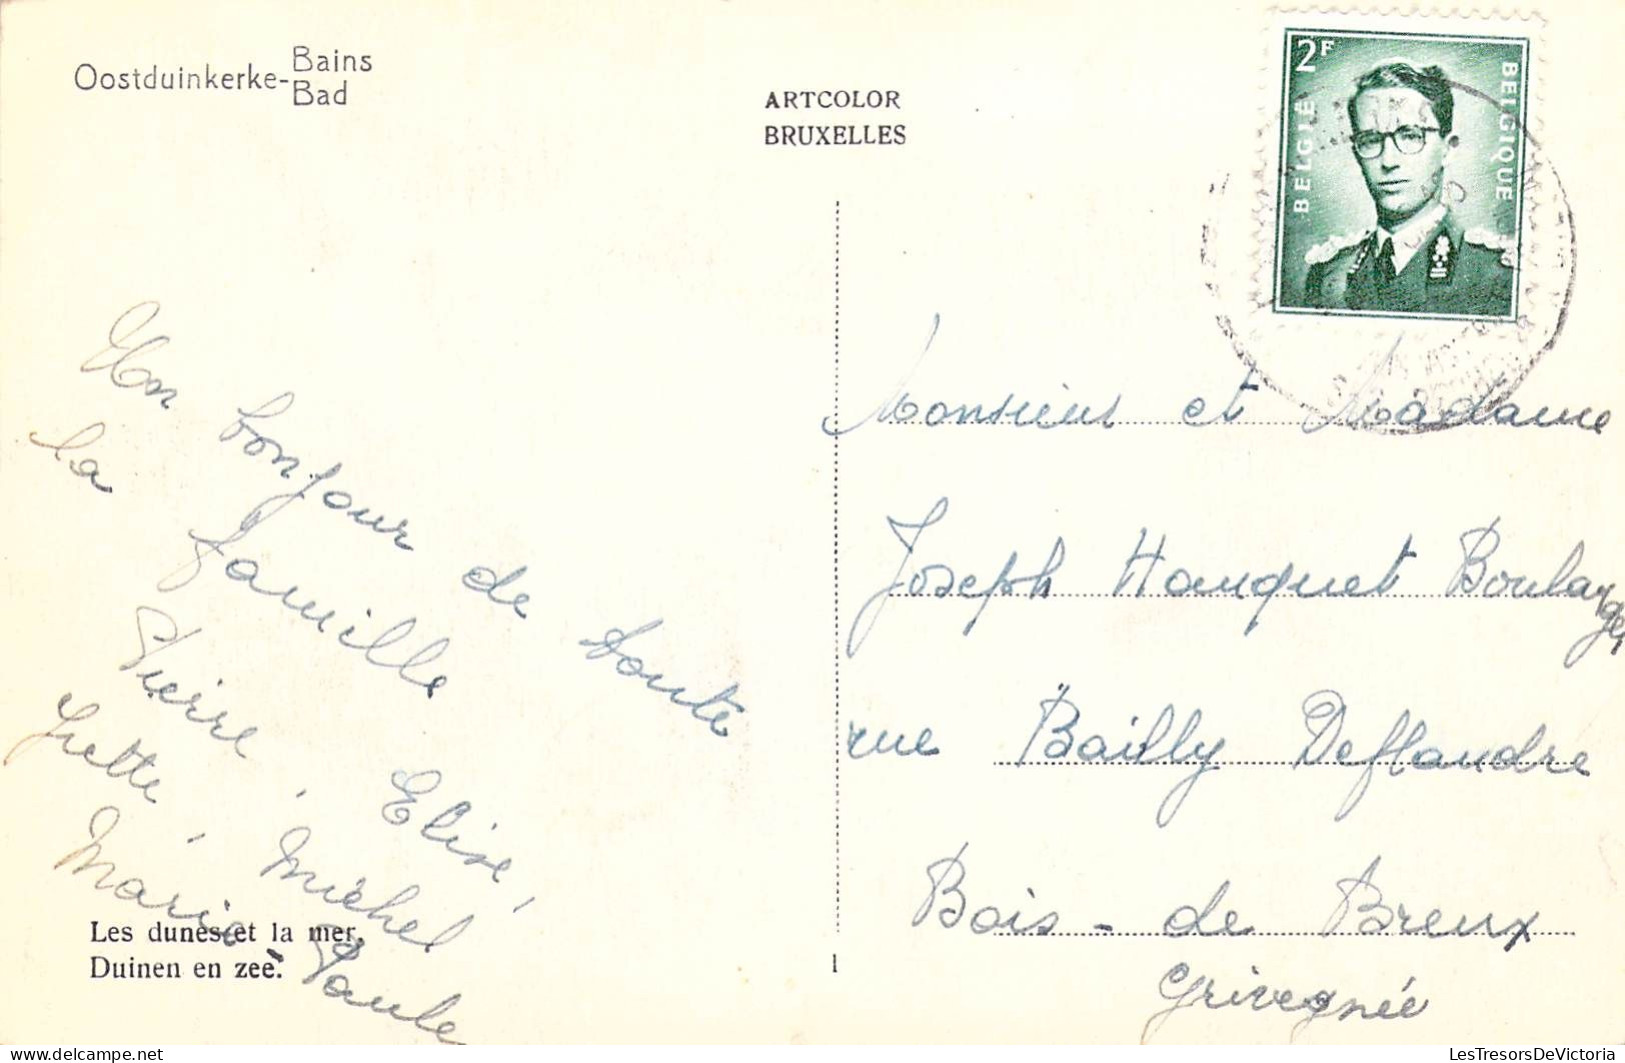 Oostduinkerke-Bains
Bad
ARTCOLOR
BRUXELLES
2F
BELGIË
BELGIQUE
Un bonjour de toute
la famille
Pierre, Elise,
Yvette, Michel
Marie Paule
Les dunes et la mer.
Duinen en zee.
1
Monsieur et Madame
Joseph Hauquet Boulanger
rue Bailly Deflandre
Bois-de Breux
Grivegnée
LesTresorsDeVictoria